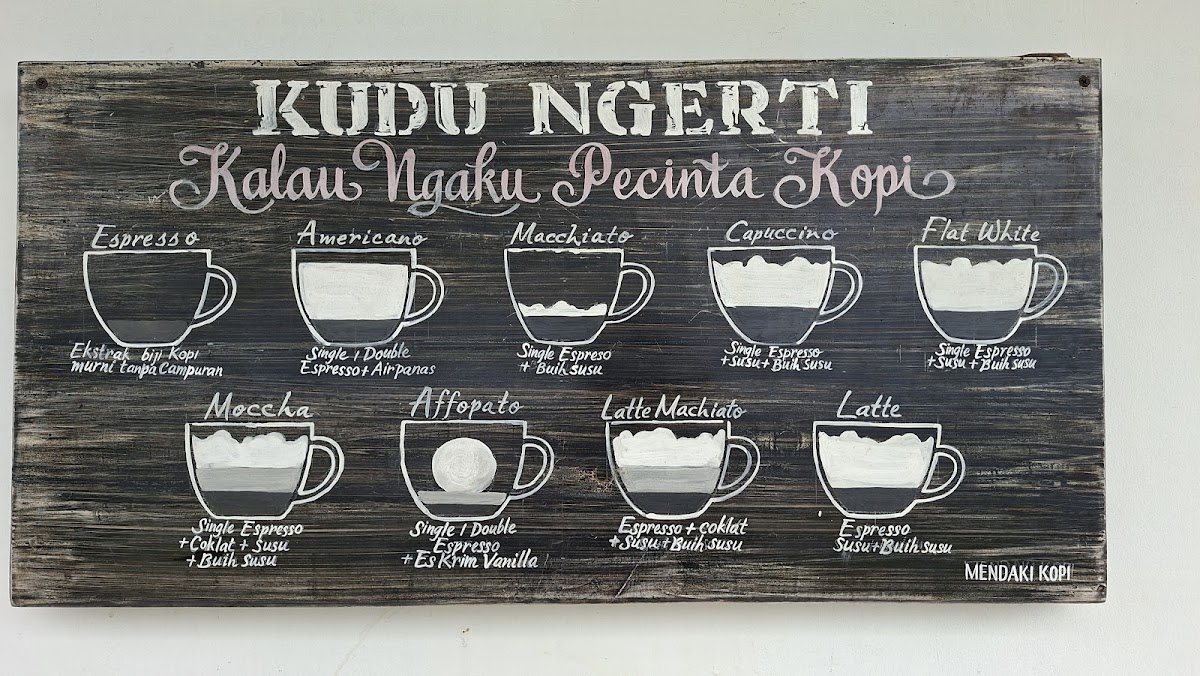 KUDU NGERTI
Kalau Ngaku Pecinta Kopi
Espresso
Ekstrak biji Kopi
murni tanpa Campuran
Americano
Single / Double
Espresso + Airpanas
Macchiato
Single Espreso
+ Buih susu
Capuccino
Single Espresso
+ Susu + Buih susu
Flat White
Single Espresso
+ Susu + Buih susu
Moccha
Single Espresso
+ Coklat + Susu
+ Buih susu
Affopato
Single / Double
Espresso
+ Es Krim Vanilla
Latte Machiato
Espresso + coklat
+ Susu + Buih susu
Latte
Espresso
Susu + Buih susu
MENDAKI KOPI